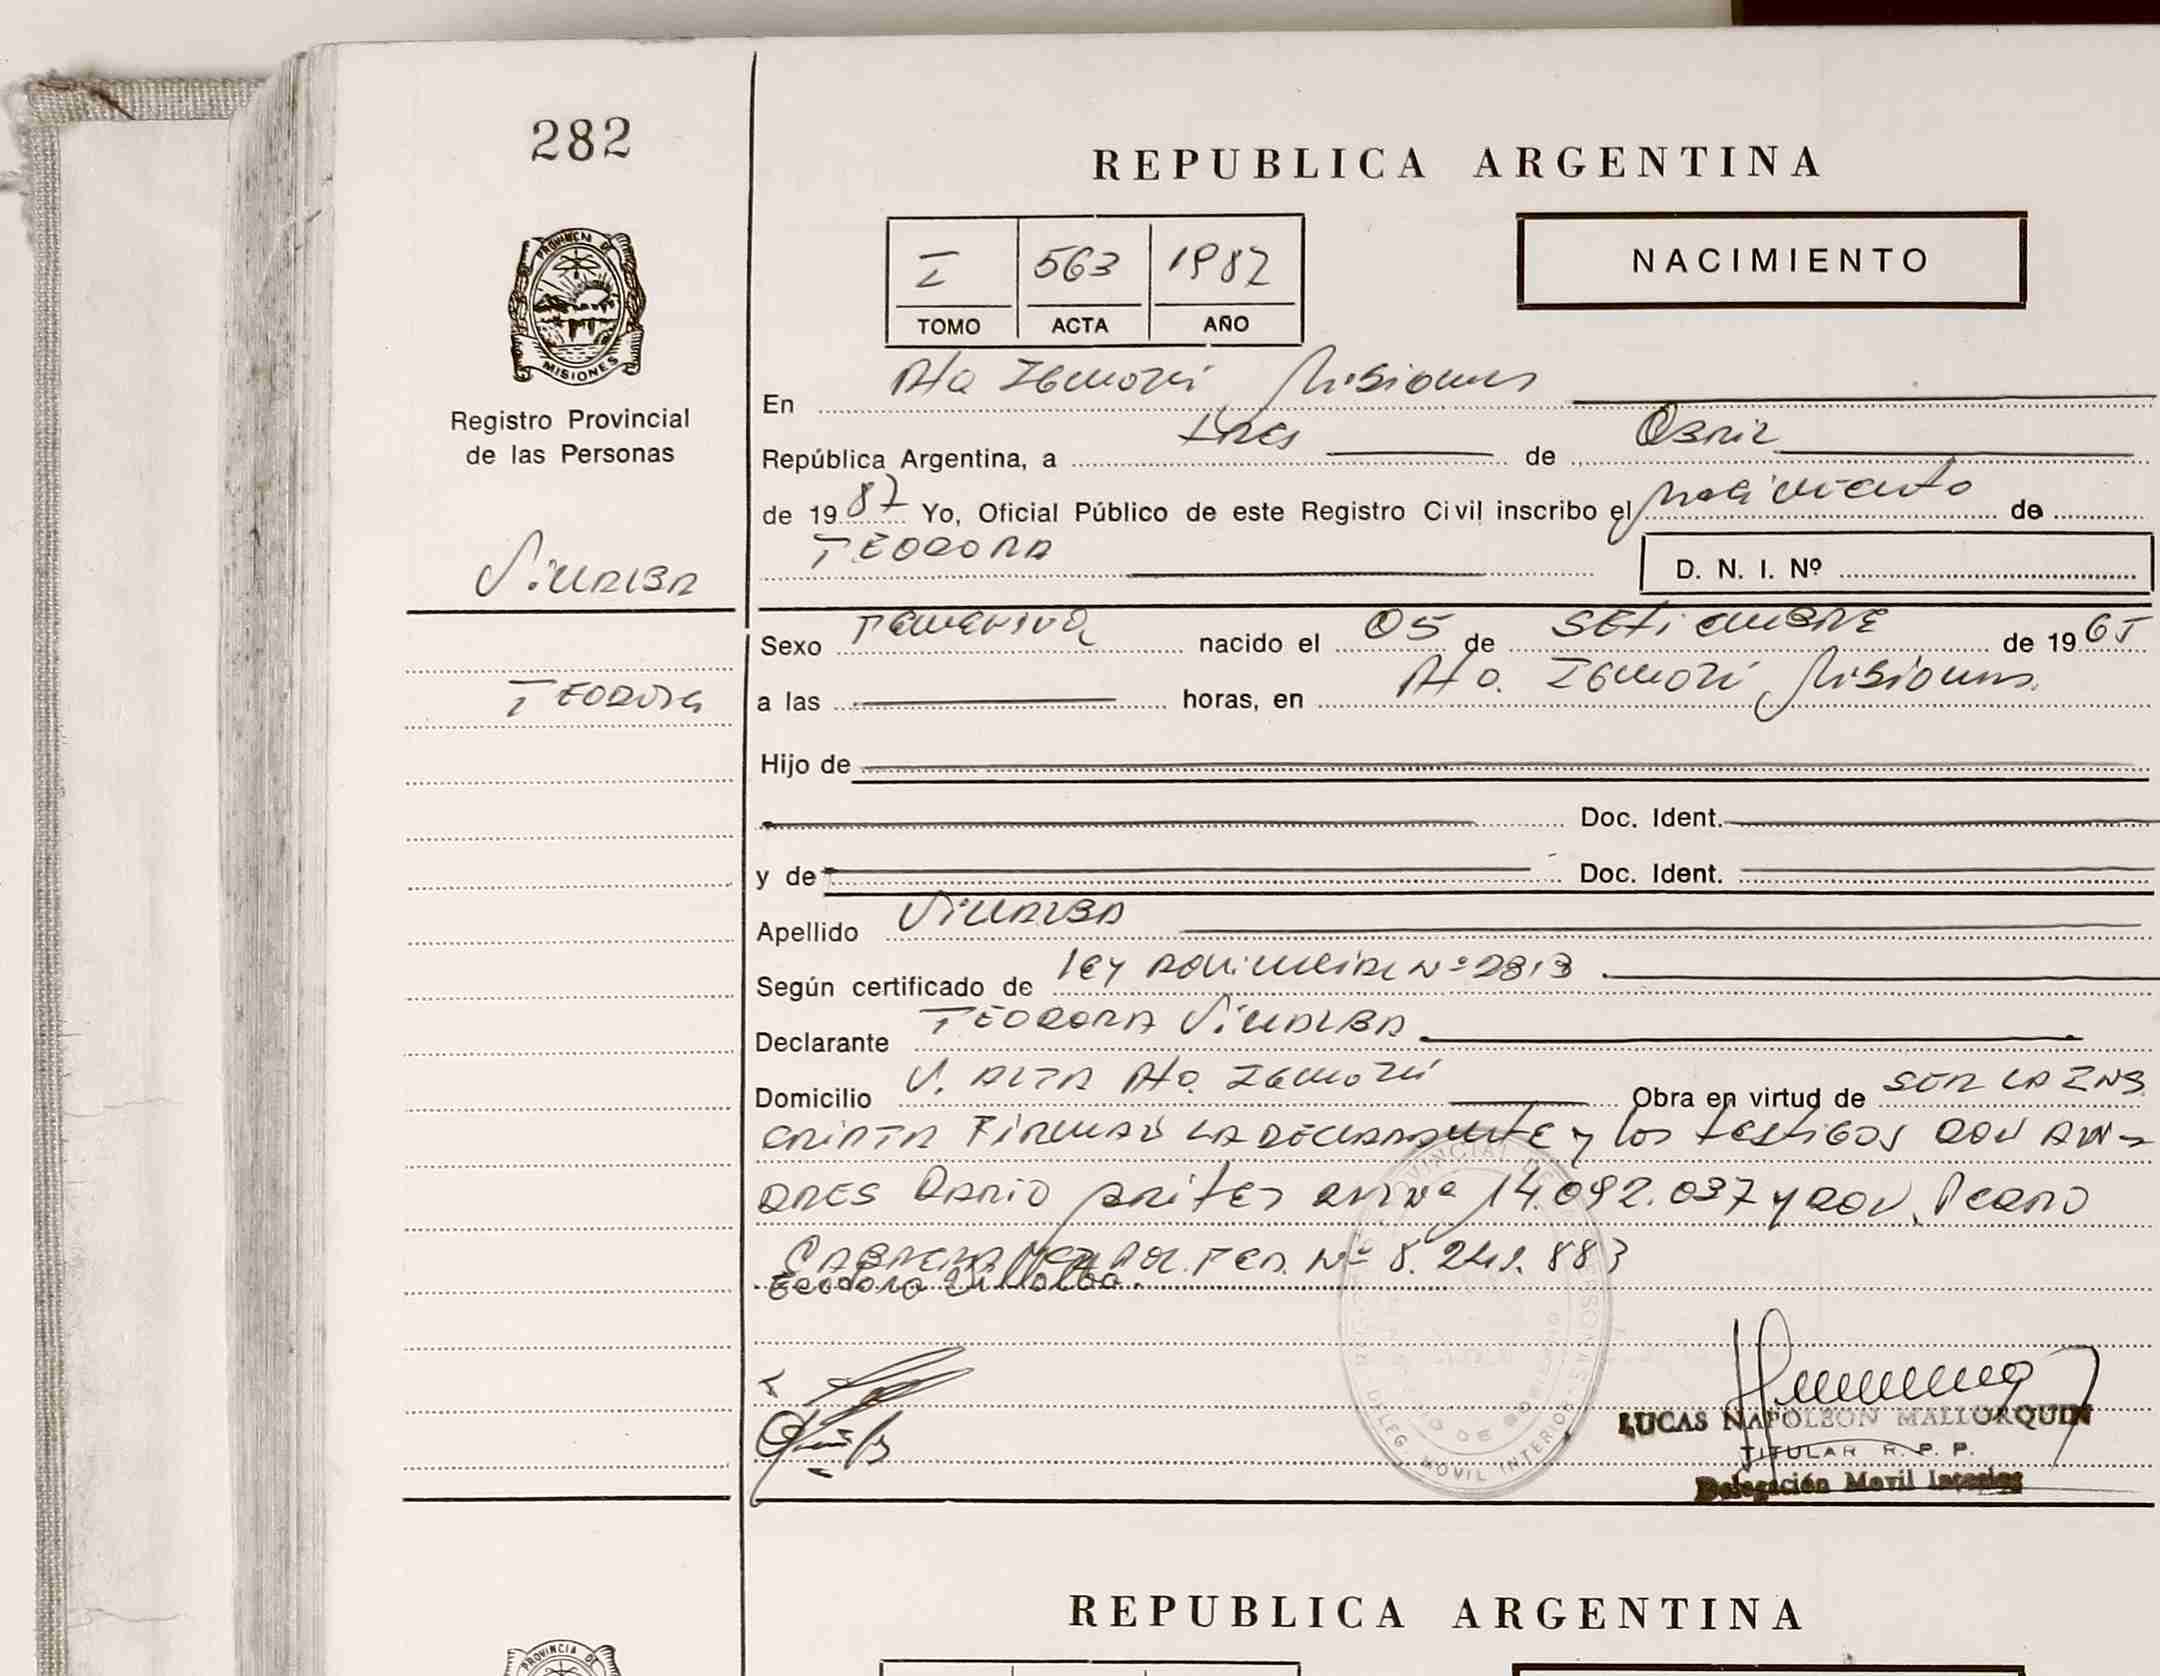 282
REPUBLICA ARGENTINA
PROVINCIA DE
MISIONES
I 563 1987
TOMO ACTA AÑO
NACIMIENTO
Registro Provincial
de las Personas
En Pto Iguazú Misiones
República Argentina, a tres de Abril
de 1987 Yo, Oficial Público de este Registro Civil inscribo el nacimiento de
TEODORA
D. N. I. Nº
Villalba
Sexo Femenino nacido el 05 de SEtiembre de 1965
Teodora
a las horas, en Pto. Iguazú Misiones.
Hijo de
Doc. Ident.
y de Doc. Ident.
Apellido Villalba
Según certificado de ley Nº 2813
Declarante TEODORA Villalba
Domicilio V. ALTA Pto. Iguazú Obra en virtud de SER LA INS
CRIPTA Firman LA DECLARANTE y los testigos DON AN-
DRES DARIO DNI Nº 14.092.037 y DON Pedro
CABRERA POL. FED. Nº 8.241.883
Teodora Villalba.
LUCAS NAPOLEON MALLORQUIN
TITULAR R. P. P.
Delegación Movil Interior
DELEG. MOVIL INTERIOR
REPUBLICA ARGENTINA
PROVINCIA DE